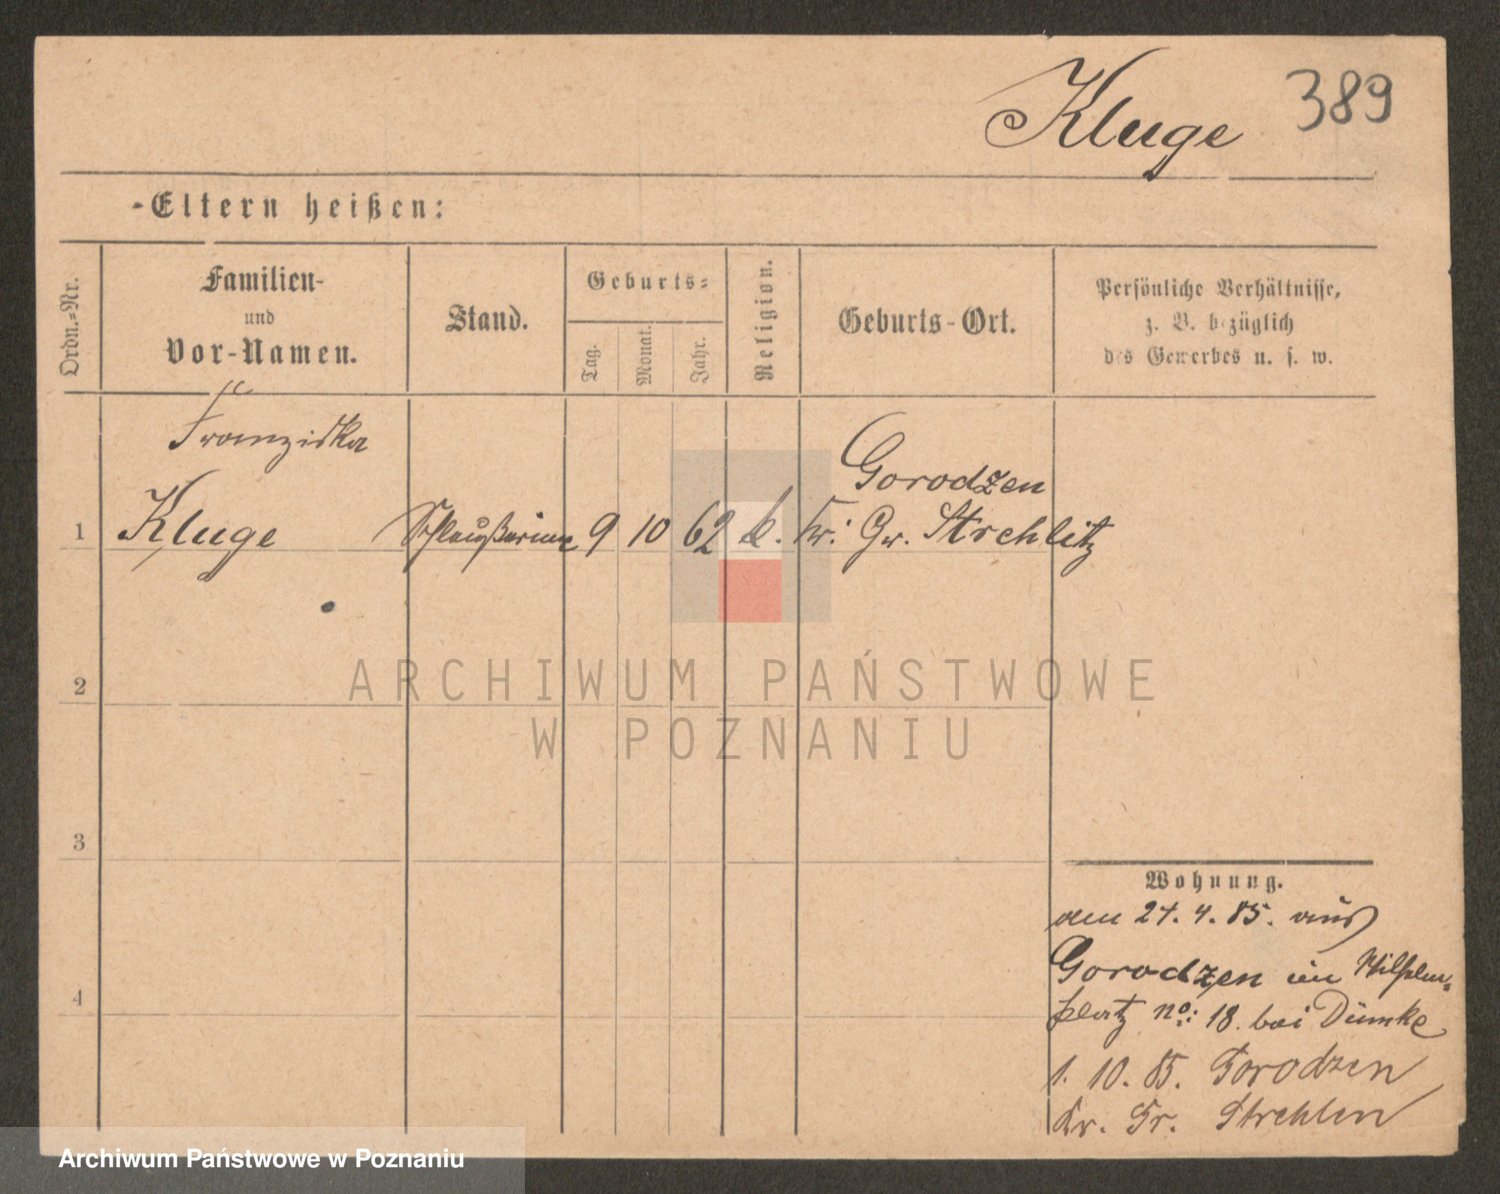 Kluge 389
Eltern heißen:
Ordn.-Nr.
Familien-
und
Vor-Namen.
Stand.
Geburts-
Tag.
Monat.
Jahr.
Religion.
Geburts-Ort.
Persönliche Verhältnisse,
z. B. bezüglich
des Gewerbes u. s. w.
Franziska
Gorodzen
1 Kluge 9 10 62 k. Kr. Gr. Strehlitz
2
3
4
Wohnung.
am 24. 4. 85. aus
Gorodzen im Wilhelm-
platz no: 18. bei Dümke
1. 10. 85. Gorodzen
Kr. Gr. Strehlen
ARCHIWUM PAŃSTWOWE
W POZNANIU
Archiwum Państwowe w Poznaniu